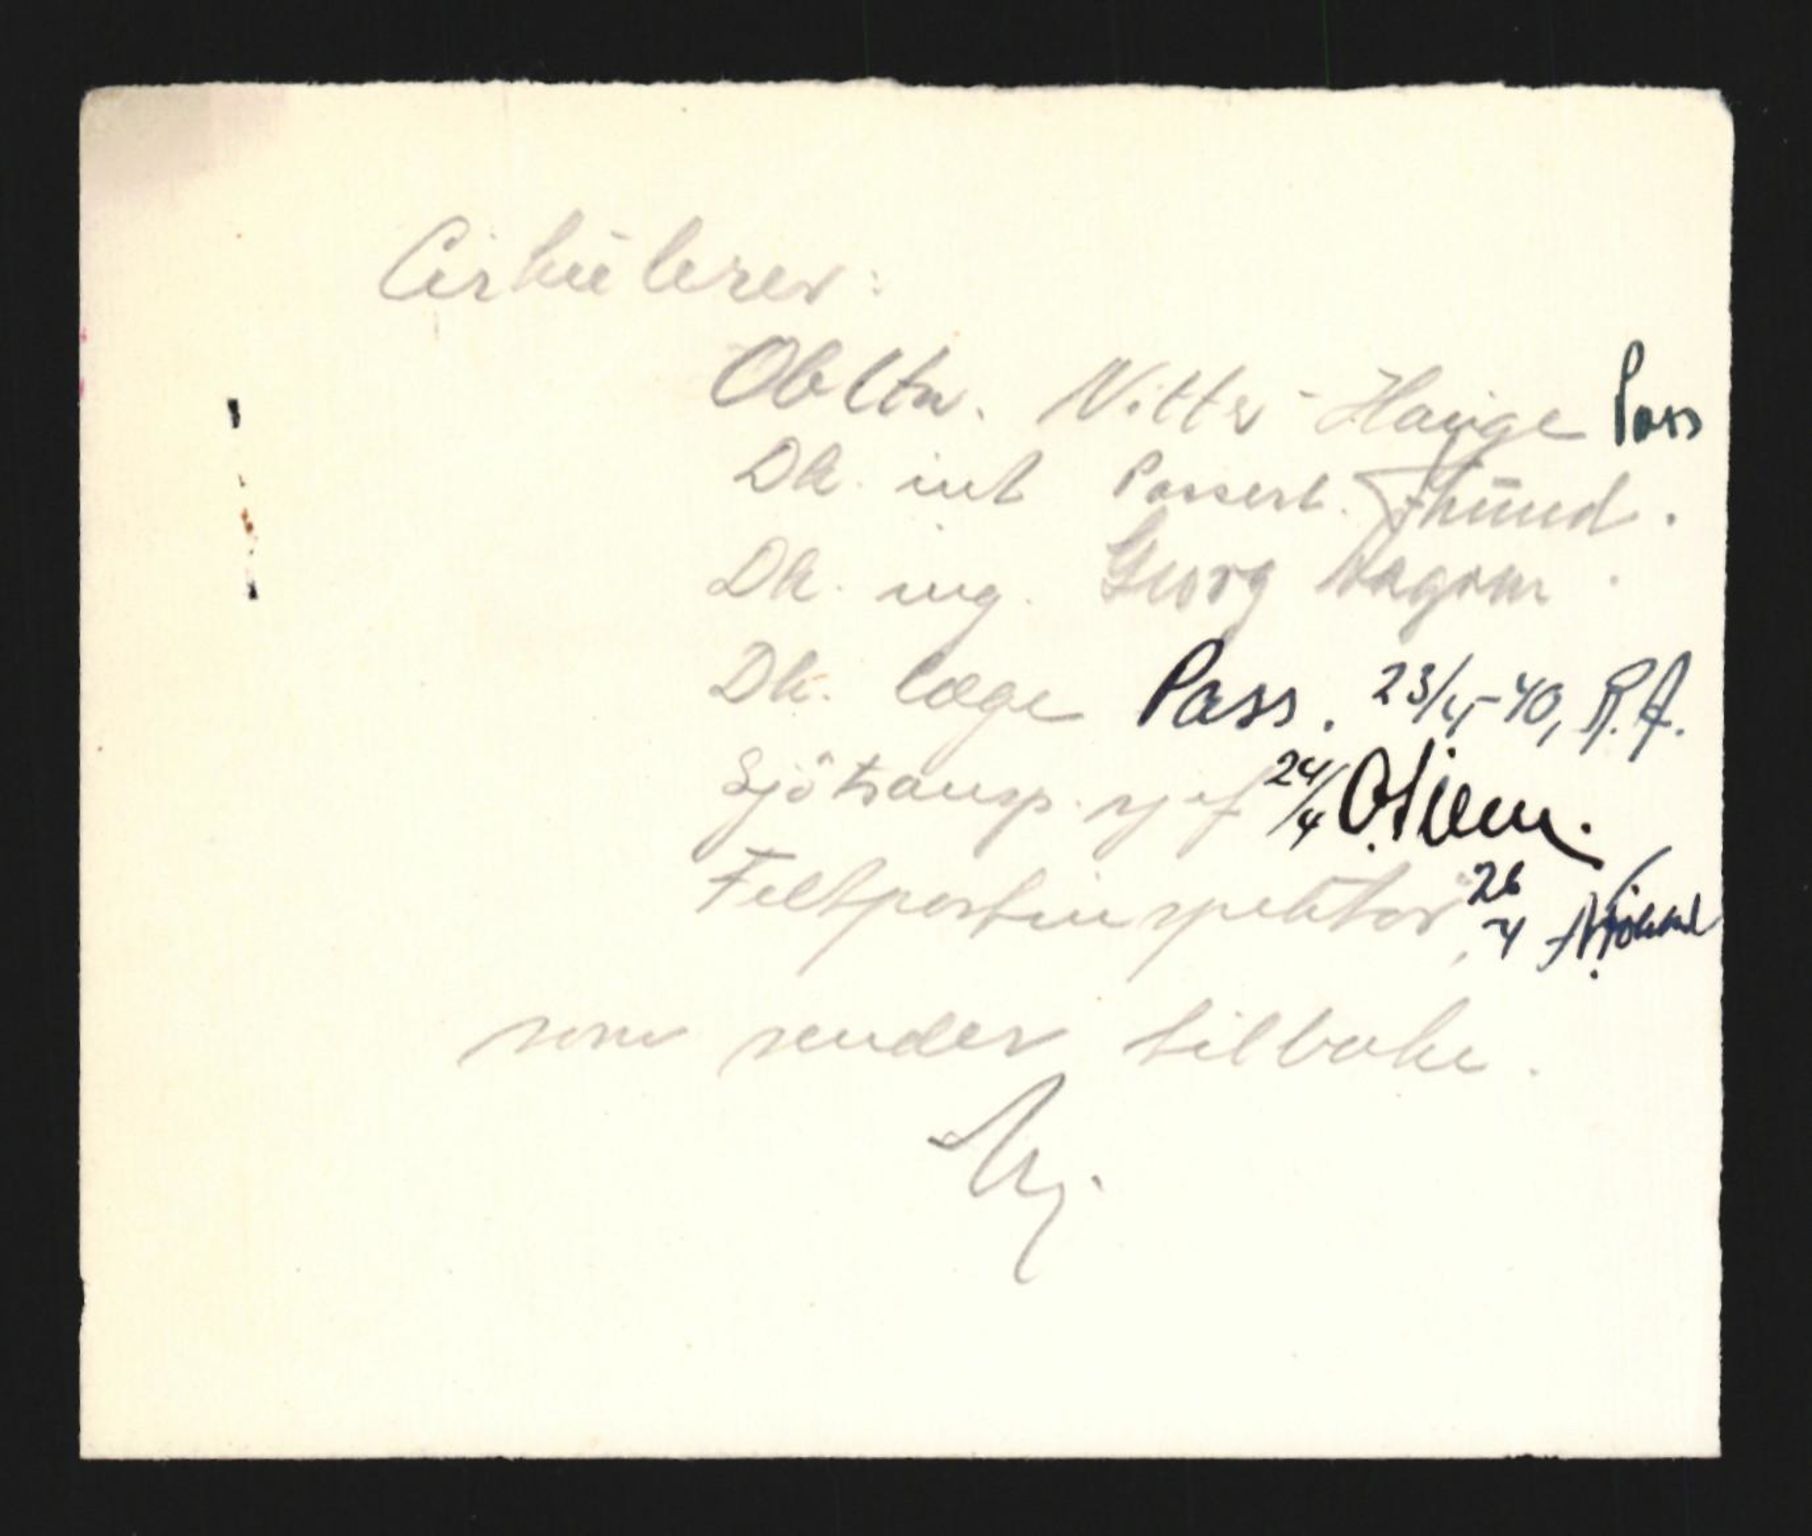 Cirkülerer:
Obltn. Nitter-Hauge Pass
Dk. int Passert.
Dk. ing. Georg
Dk. læge Pass. 23/4-40, R.A.
Sjötransp. sjef 24/4
Feltpostinspektör 26/4
som sender tilbake.